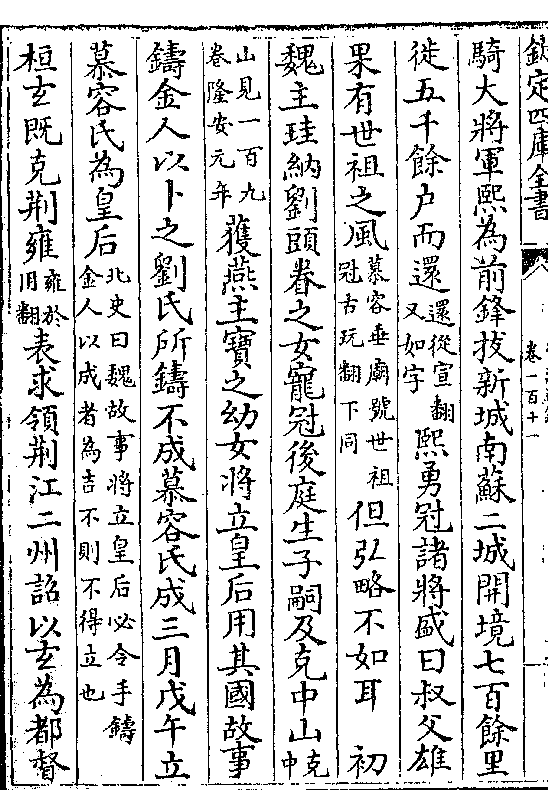 欽定四庫全書
卷一百十一
騎大將軍熙為前鋒拔新城南蘇二城開境七百餘里
徙五千餘户而還還從宣翻又如字熙勇冠諸將盛曰叔父雄
果有世祖之風慕容垂廟號世祖冠古玩翻下同但弘略不如耳　初
魏主珪納劉頭眷之女寵冠後庭生子嗣及克中山克中
山見一百九卷隆安元年獲燕主寶之幼女將立皇后用其國故事
鑄金人以卜之劉氏所鑄不成慕容氏成三月戊午立
慕容氏為皇后北史曰魏故事將立皇后必令手鑄金人以成者為吉不則不得立也
桓玄既克荆雍雍於用翻表求領荆江二州詔以玄為都督